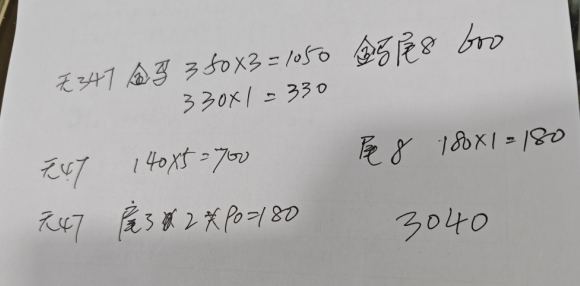 无347 金马 350×3=1050 金马尾8 600
330×1=330
无47 140×5=700 尾8 180×1=180
无47 尾3 2×90=180
3040